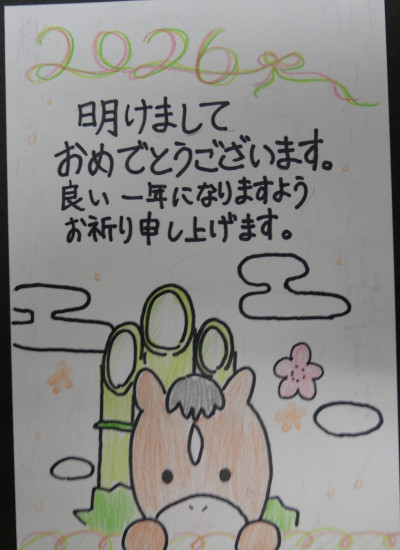 2026
明けまして
おめでとうございます。
良い一年になりますよう
お祈り申し上げます。